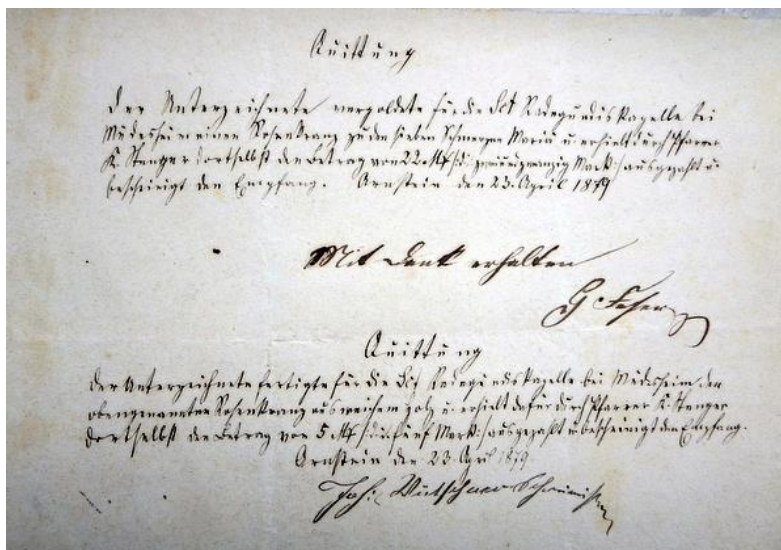 Quittung
Der Unterzeichnete vergoldete für die Sct Radegundiskapelle bei
Müdesheim einen Rosenkranz zu den sieben Schmerzen Mariä u. erhielt durch Pfarrer
K. Stenger dortselbst den Betrag von 22 M /:di: zweiundzwanzig Mark:/ ausgezahlt u.
bescheinigt den Empfang. Arnstein den 23. April 1879
Mit Dank erhalten
G Feser
Quittung
Der Unterzeichnete fertigte für die Sct Radegundiskapelle bei Müdesheim den
obengenannten Rosenkranz aus weichem Holz u. erhielt dafür durch Pfarrer K. Stenger
dortselbst den Betrag von 5 M /:di: fünf Mark:/ ausgezahlt u. bescheinigt den Empfang.
Arnstein den 23 April 1879
Joh: